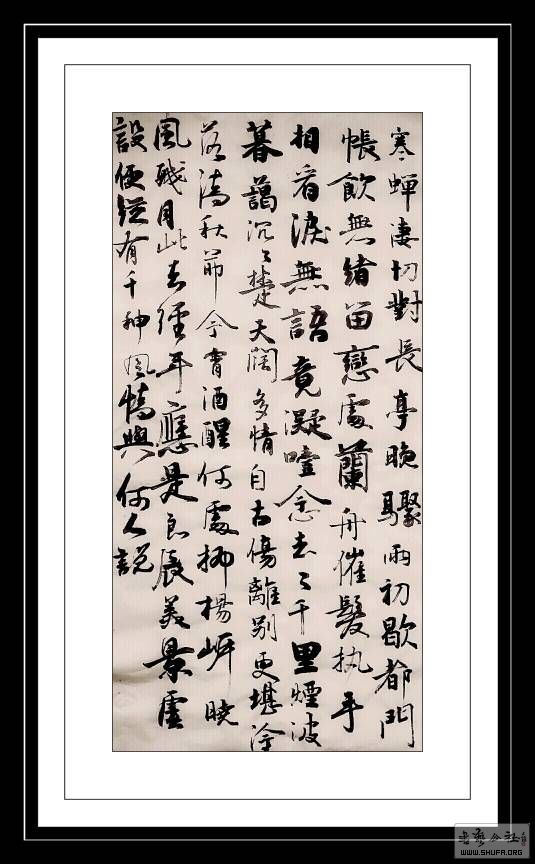 寒蟬淒切對長亭晚驟雨初歇都門
帳飲無緒留戀處蘭舟催髮执手
相看淚無語竟凝噎念去々千里煙波
暮藹沉々楚天闊多情自古傷離別更堪冷
落清秋節今宵酒醒何處柳楊岍曉
風殘月此去經年應是良辰美景虛
設便縱有千种風情與何人說
WWW.SHUFA.ORG